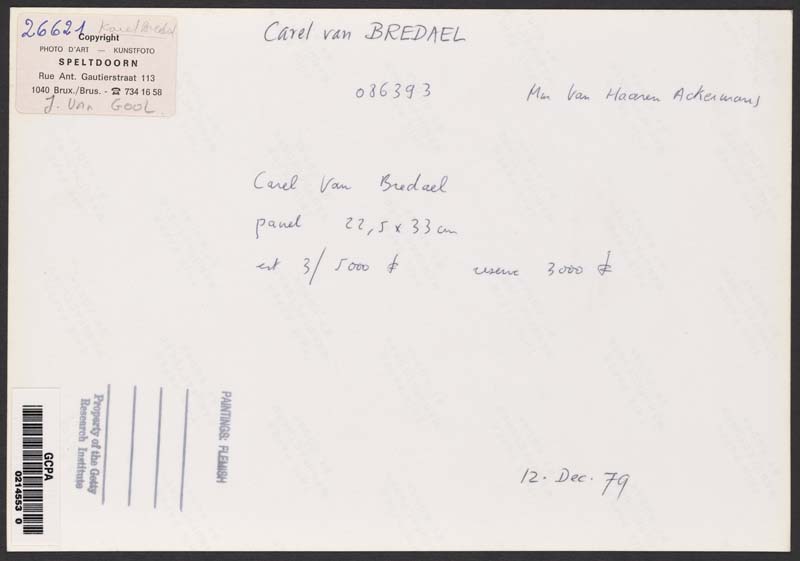 26621 Karel Bredael
Copyright
PHOTO D'ART — KUNSTFOTO
SPELTDOORN
Rue Ant. Gautierstraat 113
1040 Brux./Brus. - ☎ 734 16 58
J. Van GOOL.
Carel van BREDAEL
086393 Mm Van Haaren Ackermans
Carel Van Bredael
panel 22,5 x 33 cm
est 3/ 5000 £ reserve 3000 £
12. Dec. 79
PAINTINGS: FLEMISH
Property of the Getty
Research Institute
GCPA
0214553 0